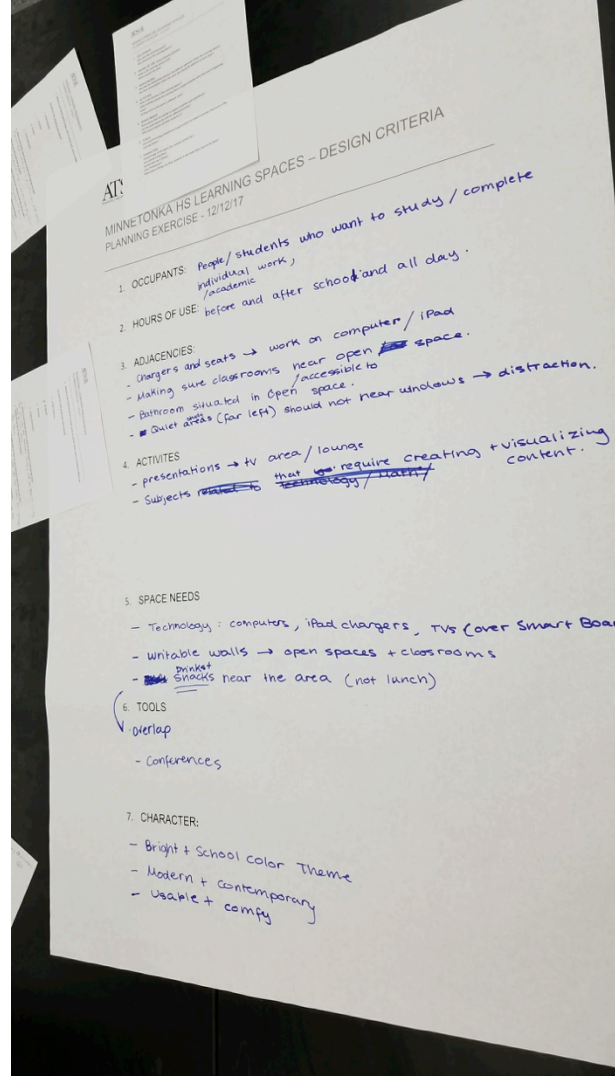 ATS
MINNETONKA HS LEARNING SPACES – DESIGN CRITERIA
PLANNING EXERCISE - 12/12/17
1. OCCUPANTS: People/students who want to study / complete
individual work,
/academic
2. HOURS OF USE: before and after school and all day.
3. ADJACENCIES:
- Chargers and seats → work on computer / iPad
- Making sure classrooms near open space.
- Bathroom situated in /accessible to open space.
- Quiet study areas (far left) should not near windows → distraction.
4. ACTIVITES
- presentations → tv area / lounge
- Subjects related to that require creating + visualizing
technology / math/ content.
5. SPACE NEEDS
- Technology: computers, iPad chargers, TVs (over Smart Boa
- Writable walls → open spaces + classrooms
- Drinks + snacks near the area (not lunch)
6. TOOLS
overlap
- Conferences
7. CHARACTER:
- Bright + School color Theme
- Modern + contemporary
- Usable + comfy